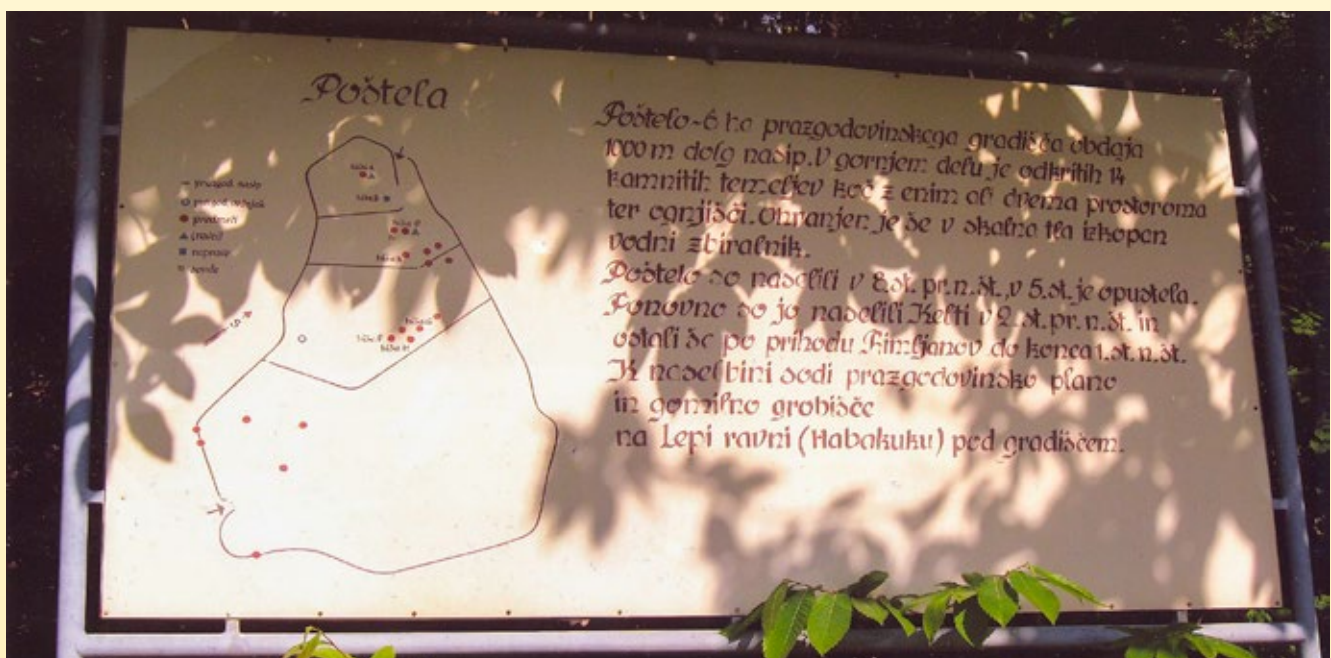 Poštela
Poštelo-6 ha prazgodovinskega gradišča obdaja
1000 m dolg nasip. V gornjem delu je odkritih 14
kamnitih temeljev koč z enim ali dvema prostoroma
ter ognjišči. Ohranjen je še v skalna tla izkopan
vodni zbiralnik.
Poštelo so naselili v 8.st. pr.n.št., v 5.st. je opustela.
Ponovno so jo naselili Kelti v 2.st.pr.n.št. in
ostali še po prihodu Rimljanov do konca 1.st.n.št.
K naselbini sodi prazgodovinsko plano
in gomilno grobišče
na Lepi ravni (Habakuku) pod gradiščem.
prazgod. nasip
predmeti